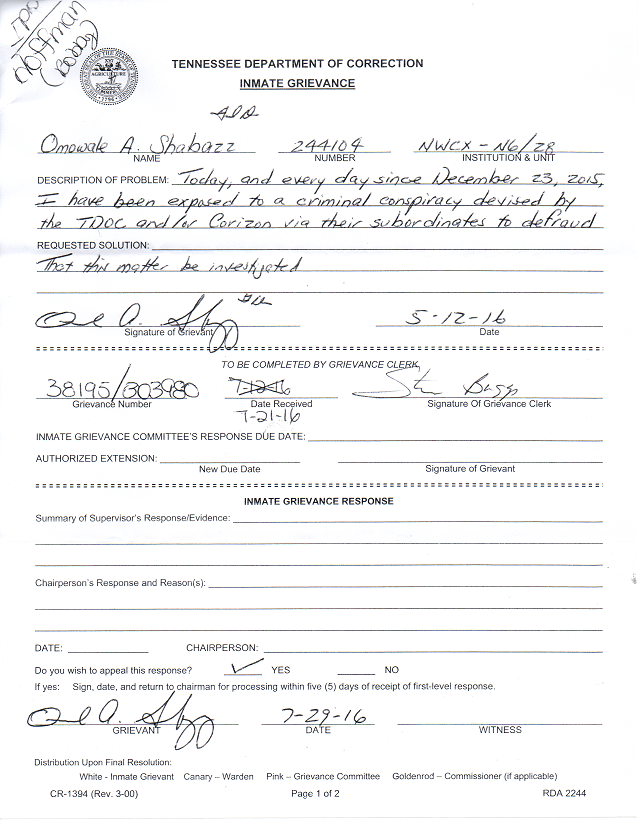 Hoffman
AGRICULTURE
1796
TENNESSEE DEPARTMENT OF CORRECTION
INMATE GRIEVANCE
Omowale A. Shabazz 244104 NWCX - N6/28
NAME NUMBER INSTITUTION & UNIT
DESCRIPTION OF PROBLEM: Today, and every day since December 23, 2015,
I have been exposed to a criminal conspiracy devised by
the TDOC and/or Corizon via their subordinates to defraud
REQUESTED SOLUTION:
That this matter be investigated
5-12-16
Signature of Grievant Date
TO BE COMPLETED BY GRIEVANCE CLERK
38195/303980 7-12-16
Grievance Number Date Received Signature Of Grievance Clerk
7-21-16
INMATE GRIEVANCE COMMITTEE'S RESPONSE DUE DATE:
AUTHORIZED EXTENSION:
New Due Date Signature of Grievant
INMATE GRIEVANCE RESPONSE
Summary of Supervisor's Response/Evidence:
Chairperson's Response and Reason(s):
DATE: CHAIRPERSON:
Do you wish to appeal this response? YES NO
If yes: Sign, date, and return to chairman for processing within five (5) days of receipt of first-level response.
7-29-16
GRIEVANT DATE WITNESS
Distribution Upon Final Resolution:
White - Inmate Grievant Canary – Warden Pink – Grievance Committee Goldenrod – Commissioner (if applicable)
CR-1394 (Rev. 3-00) Page 1 of 2 RDA 2244